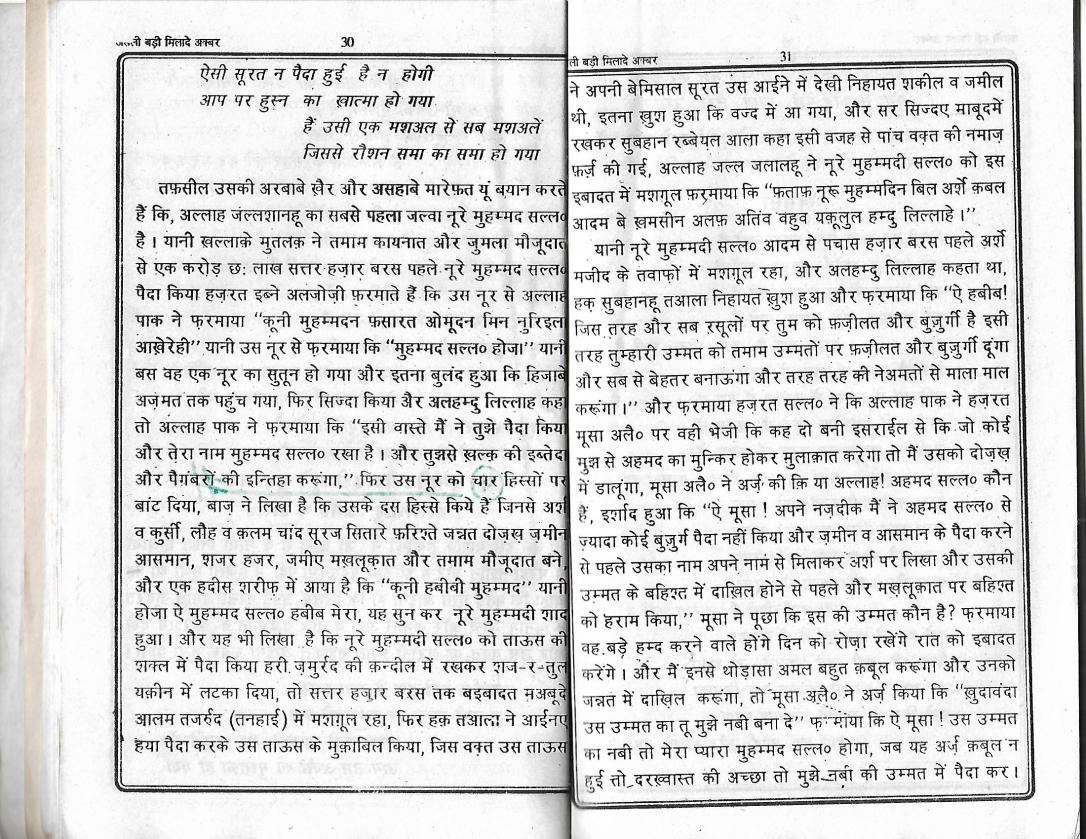 असली बड़ी मिलादे अक्बर 30
ऐसी सूरत न पैदा हुई है न होगी
आप पर हुस्न का ख़ात्मा हो गया
हैं उसी एक मशअल से सब मशअलें
जिससे रौशन समा का समा हो गया
तफ़सील उसकी अरबाबे ख़ैर और असहाबे मारेफ़त यूं बयान करते
हैं कि, अल्लाह जल्लशानहू का सबसे पहला जल्वा नूरे मुहम्मद सल्ल०
है। यानी ख़ल्लाक़े मुतलक़ ने तमाम कायनात और जुमला मौजूदात
से एक करोड़ छ: लाख सत्तर हज़ार बरस पहले नूरे मुहम्मद सल्ल०
पैदा किया हज़रत इब्ने अलजोज़ी फ़रमाते हैं कि उस नूर से अल्लाह
पाक ने फ़रमाया “कूनी मुहम्मदन फ़सारत ओमूदन मिन नुरिइला
आख़ेरेही” यानी उस नूर से फ़रमाया कि “मुहम्मद सल्ल० होजा” यानी
बस वह एक नूर का सुतून हो गया और इतना बुलंद हुआ कि हिजाबे
अज़मत तक पहुंच गया, फिर सिज्दा किया और अलहम्दु लिल्लाह कहा
तो अल्लाह पाक ने फ़रमाया कि “इसी वास्ते मैं ने तुझे पैदा किया
और तेरा नाम मुहम्मद सल्ल० रखा है। और तुझसे ख़ल्क़ की इब्तेदा
और पैग़ंबरों की इन्तिहा करूंगा,” फिर उस नूर को चार हिस्सों पर
बांट दिया, बाज़ ने लिखा है कि उसके दस हिस्से किये हैं जिनसे अर्श
व कुर्सी, लौह व क़लम चांद सूरज सितारे फ़रिश्ते जन्नत दोज़ख़ ज़मीन
आसमान, शजर हजर, जमीए मख़लूकात और तमाम मौजूदात बने,
और एक हदीस शरीफ़ में आया है कि “कूनी हबीबी मुहम्मद” यानी
होजा ऐ मुहम्मद सल्ल० हबीब मेरा, यह सुन कर नूरे मुहम्मदी शाद
हुआ। और यह भी लिखा है कि नूरे मुहम्मदी सल्ल० को ताऊस की
शक्ल में पैदा किया हरी ज़मुर्रद की क़न्दील में रखकर शज-र-तुल
यक़ीन में लटका दिया, तो सत्तर हज़ार बरस तक बइबादत मअबूदे
आलम तजर्रुद (तनहाई) में मशग़ूल रहा, फिर हक़ तआला ने आईनए
हया पैदा करके उस ताऊस के मुक़ाबिल किया, जिस वक़्त उस ताऊस
ली बड़ी मिलादे अक्बर 31
ने अपनी बेमिसाल सूरत उस आईने में देखी निहायत शकील व जमील
थी, इतना ख़ुश हुआ कि वज्द में आ गया, और सर सिज्दए माबूदमें
रखकर सुबहान रब्बेयल आला कहा इसी वजह से पांच वक़्त की नमाज़
फ़र्ज़ की गई, अल्लाह जल्ल जलालहू ने नूरे मुहम्मदी सल्ल० को इस
इबादत में मशग़ूल फ़रमाया कि “फ़ताफ़ नूरू मुहम्मदिन बिल अर्शे क़बल
आदम बे ख़मसीन अलफ़ अतिंव वहुव यक़ूलुल हम्दु लिल्लाहे।”
यानी नूरे मुहम्मदी सल्ल० आदम से पचास हज़ार बरस पहले अर्शे
मजीद के तवाफ़ों में मशग़ूल रहा, और अलहम्दु लिल्लाह कहता था,
हक़ सुबहानहू तआला निहायत ख़ुश हुआ और फ़रमाया कि “ऐ हबीब!
जिस तरह और सब रसूलों पर तुम को फ़ज़ीलत और बुज़ुर्गी है इसी
तरह तुम्हारी उम्मत को तमाम उम्मतों पर फ़ज़ीलत और बुज़ुर्गी दूंगा
और सब से बेहतर बनाऊंगा और तरह तरह की नेअमतों से माला माल
करूंगा।” और फ़रमाया हज़रत सल्ल० ने कि अल्लाह पाक ने हज़रत
मूसा अलै० पर वही भेजी कि कह दो बनी इसराईल से कि जो कोई
मुझ से अहमद का मुन्किर होकर मुलाक़ात करेगा तो मैं उसको दोज़ख़
में डालूंगा, मूसा अलै० ने अर्ज़ की कि या अल्लाह! अहमद सल्ल० कौन
हैं, इर्शाद हुआ कि “ऐ मूसा! अपने नज़दीक मैं ने अहमद सल्ल० से
ज़्यादा कोई बुज़ुर्ग पैदा नहीं किया और ज़मीन व आसमान के पैदा करने
से पहले उसका नाम अपने नाम से मिलाकर अर्श पर लिखा और उसकी
उम्मत के बहिश्त में दाख़िल होने से पहले और मख़लूक़ात पर बहिश्त
को हराम किया,” मूसा ने पूछा कि इस की उम्मत कौन है? फ़रमाया
वह बड़े हम्द करने वाले होंगे दिन को रोज़ा रखेंगे रात को इबादत
करेंगे। और मैं इनसे थोड़ासा अमल बहुत क़बूल करूंगा और उनको
जन्नत में दाख़िल करूंगा, तो मूसा अलै० ने अर्ज़ किया कि “ख़ुदावंदा
उस उम्मत का तू मुझे नबी बना दे” फ़रमाया कि ऐ मूसा! उस उम्मत
का नबी तो मेरा प्यारा मुहम्मद सल्ल० होगा, जब यह अर्ज़ क़बूल न
हुई तो दरख्वास्त की अच्छा तो मुझे नबी की उम्मत में पैदा कर।